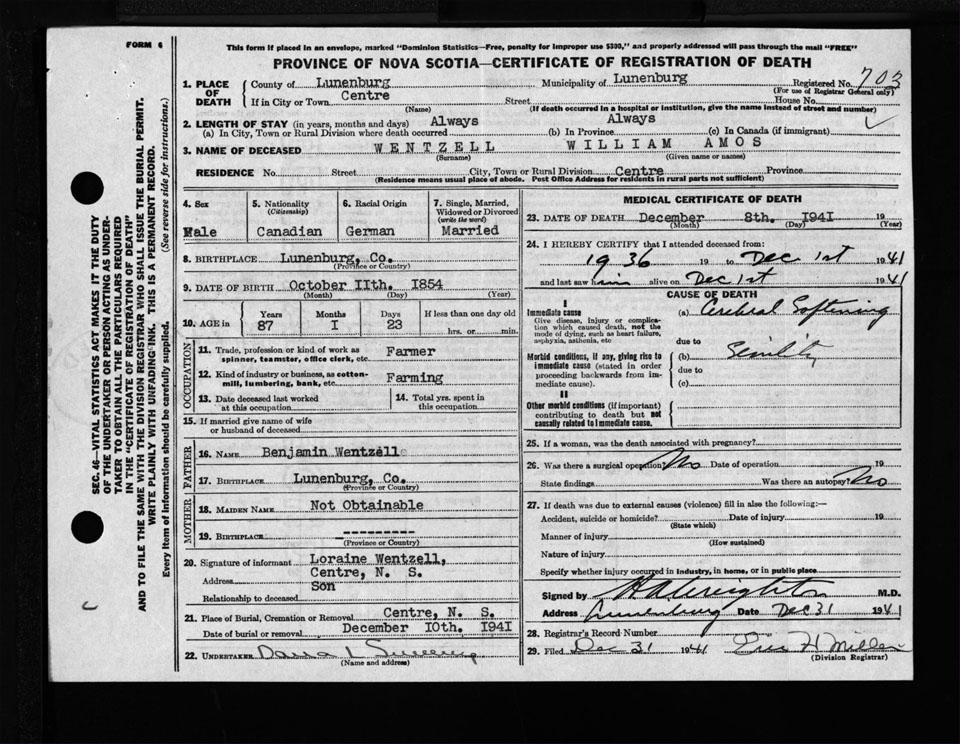 FORM 6
This form if placed in an envelope, marked "Dominion Statistics—Free, penalty for improper use $300," and properly addressed will pass through the mail "FREE"
PROVINCE OF NOVA SCOTIA—CERTIFICATE OF REGISTRATION OF DEATH
SEC. 46—VITAL STATISTICS ACT MAKES IT THE DUTY
OF THE UNDERTAKER OR PERSON ACTING AS UNDER-
TAKER TO OBTAIN ALL THE PARTICULARS REQUIRED
IN THE "CERTIFICATE OF REGISTRATION OF DEATH"
AND TO FILE THE SAME WITH THE DIVISION REGISTRAR WHO SHALL ISSUE THE BURIAL PERMIT.
WRITE PLAINLY WITH UNFADING INK. THIS IS A PERMANENT RECORD.
Every item of Information should be carefully supplied. (See reverse side for instructions.)
1. PLACE OF DEATH County of Lunenburg Municipality of Lunenburg Registered No. 703
(For use of Registrar General only)
If in City or Town Centre Street House No.
(Name) (If death occurred in a hospital or institution, give the name instead of street and number)
2. LENGTH OF STAY (in years, months and days) Always Always
(a) In City, Town or Rural Division where death occurred (b) In Province (c) In Canada (if immigrant)
3. NAME OF DECEASED WENTZELL WILLIAM AMOS
(Surname) (Given name or names)
RESIDENCE No. Street City, Town or Rural Division Centre Province
(Residence means usual place of abode. Post Office Address for residents in rural parts not sufficient)
4. Sex 5. Nationality (Citizenship) 6. Racial Origin 7. Single, Married, Widowed or Divorced (write the word)
Male Canadian German Married
8. BIRTHPLACE Lunenburg, Co.
(Province or Country)
9. DATE OF BIRTH October IIth. 1854
(Month) (Day) (Year)
10. AGE in Years Months Days If less than one day old
87 I 23 hrs. or min.
OCCUPATION
11. Trade, profession or kind of work as spinner, teamster, office clerk, etc. Farmer
12. Kind of industry or business, as cotton-mill, lumbering, bank, etc. Farming
13. Date deceased last worked at this occupation 14. Total yrs. spent in this occupation
15. If married give name of wife or husband of deceased
FATHER
16. NAME Benjamin Wentzell
17. BIRTHPLACE Lunenburg, Co.
(Province or Country)
MOTHER
18. MAIDEN NAME Not Obtainable
19. BIRTHPLACE ----------
(Province or Country)
20. Signature of informant Loraine Wentzell,
Address Centre, N. S.
Relationship to deceased Son
21. Place of Burial, Cremation or Removal Centre, N. S.
Date of burial or removal December I0th. I94I
22. UNDERTAKER
(Name and address)
MEDICAL CERTIFICATE OF DEATH
23. DATE OF DEATH December 8th. I94I 19
(Month) (Day) (Year)
24. I HEREBY CERTIFY that I attended deceased from:
1936 19 to Dec 1st 1941
and last saw him alive on Dec 1st 1941
CAUSE OF DEATH
I
Immediate cause
Give disease, injury or complication which caused death, not the mode of dying, such as heart failure, asphyxia, asthenia, etc
(a) Cerebral Softening
due to
Morbid conditions, if any, giving rise to immediate cause (stated in order proceeding backwards from immediate cause).
(b) Senility
due to
(c)
II
Other morbid conditions (if important) contributing to death but not causally related to immediate cause.
25. If a woman, was the death associated with pregnancy?
26. Was there a surgical operation? No Date of operation 19
State findings Was there an autopsy? No
27. If death was due to external causes (violence) fill in also the following:—
Accident, suicide or homicide? Date of injury 19
(State which)
Manner of injury
(How sustained)
Nature of injury
Specify whether injury occurred in industry, in home, or in public place
Signed by H A Creighton M.D.
Address Lunenburg Date Dec 31 1941
28. Registrar's Record Number
29. Filed Dec 31 1941 H Miller
(Division Registrar)